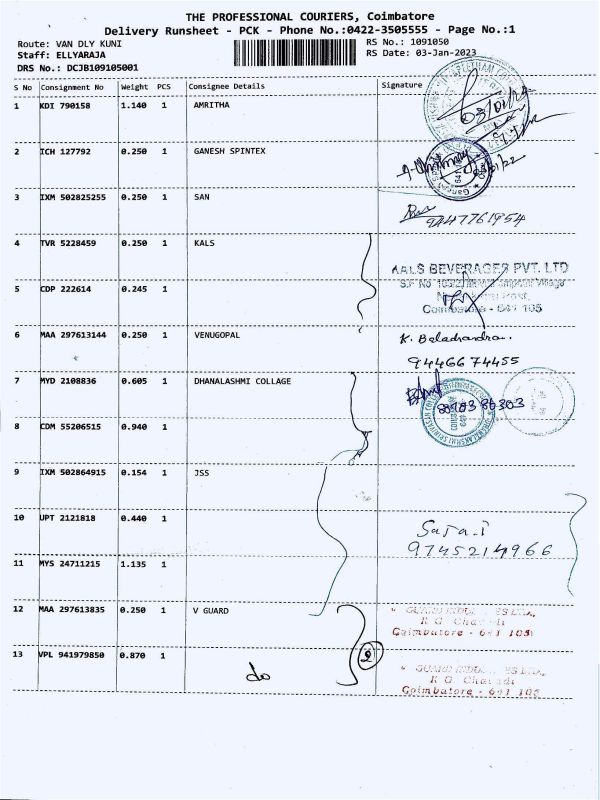 THE PROFESSIONAL COURIERS, Coimbatore
Delivery Runsheet - PCK - Phone No.:0422-3505555 - Page No.:1
Route: VAN DLY KUNI
RS No.: 1091050
Staff: ELLYARAJA
RS Date: 03-Jan-2023
DRS No.: DCJB109105001
S No Consignment No Weight PCS Consignee Details Signature
1 KDI 790158 1.140 1 AMRITHA
2 ICH 127792 0.250 1 GANESH SPINTEX
3 IXM 502825255 0.250 1 SAN
9447761954
4 TVR 5228459 0.250 1 KALS
KALS BEVERAGES PVT. LTD
5 CDP 222614 0.245 1
Coimbatore - 641 105
6 MAA 297613144 0.250 1 VENUGOPAL K. Baladhandra.
9446674455
7 MYD 2108836 0.605 1 DHANALASHMI COLLAGE
80903 86303
8 CDM 55206515 0.940 1
9 IXM 502864915 0.154 1 JSS
10 UPT 2121818 0.440 1
9745214966
11 MYS 24711215 1.135 1
12 MAA 297613835 0.250 1 V GUARD
Coimbatore - 641 105
13 VPL 941979850 0.870 1
do 2
Coimbatore - 641 105